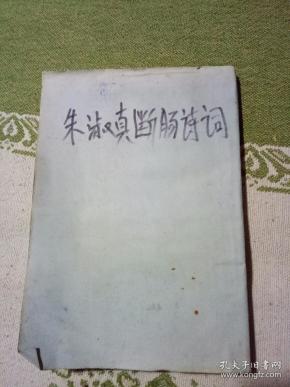 朱淑真断肠诗词
孔夫子旧书网